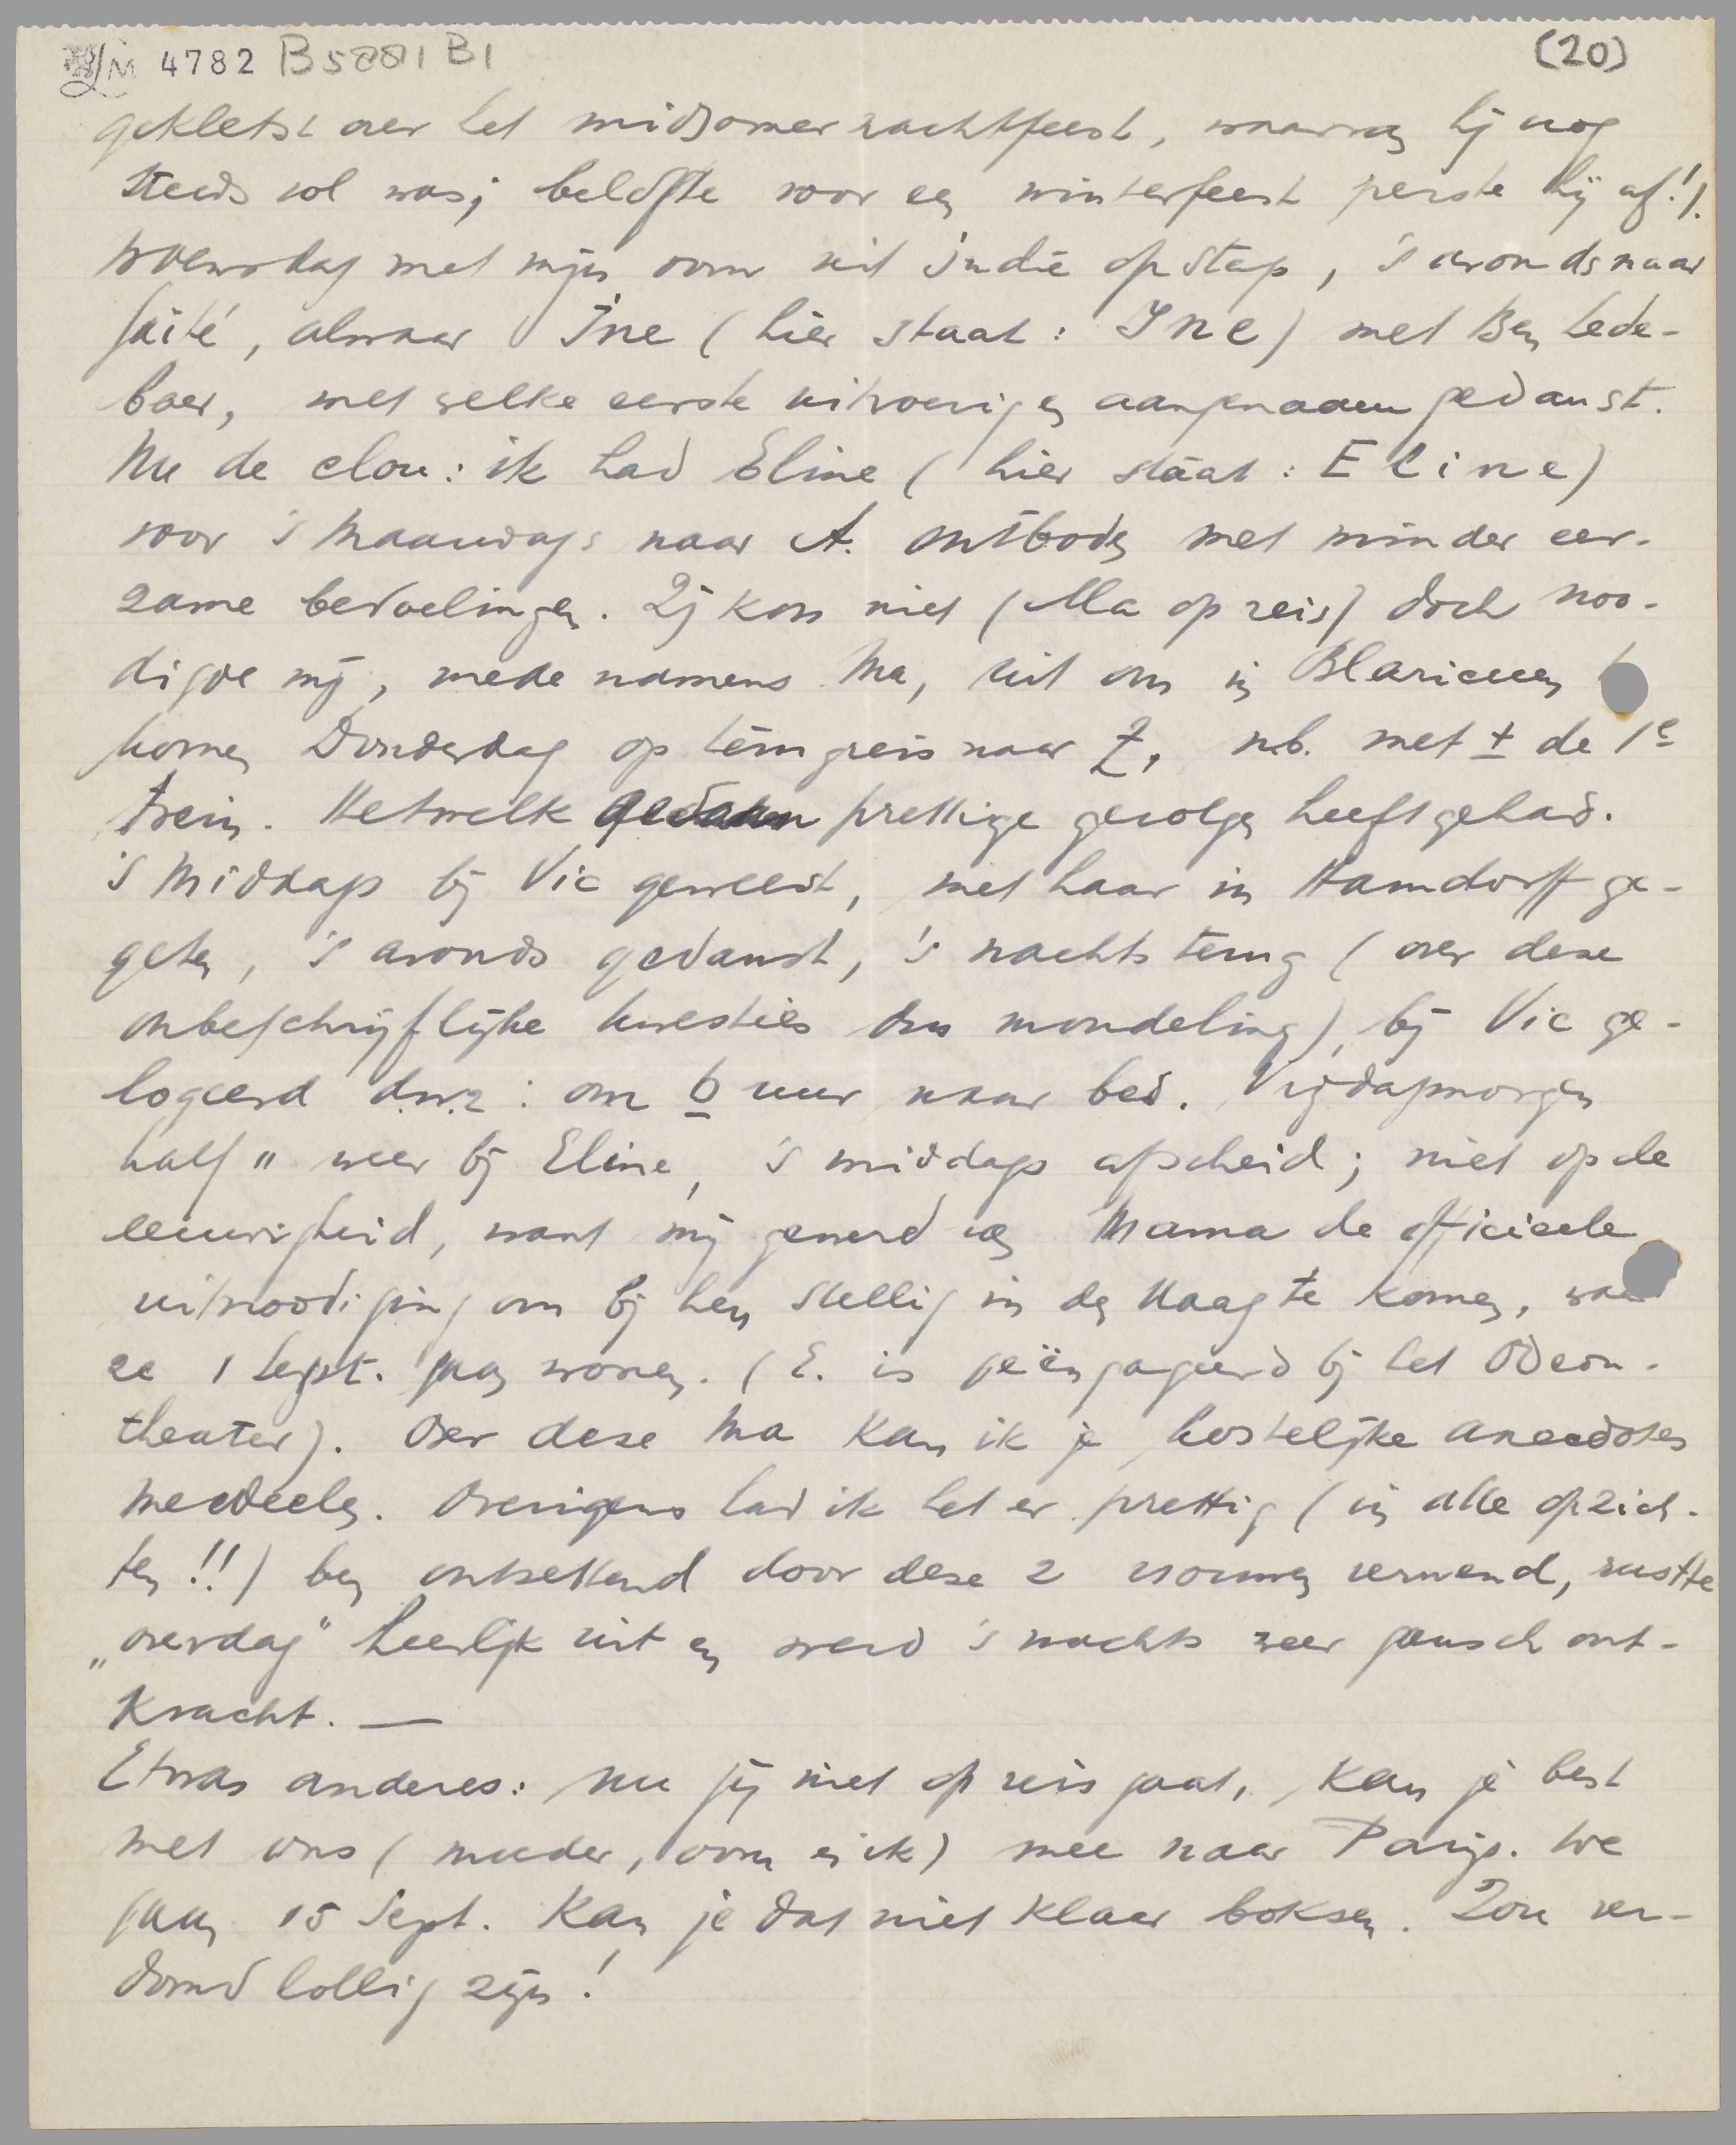 LM 4782 B5881 B1 (20)
gekletst over het midzomernachtfeest, waarvan hij nog
steeds vol was; belofte voor een winterfeest perste hij af!).
Woensdag met mijn oom uit Indië op stap, 's avonds naar
Gaité, alwaar Ine (hier staat: Ine) met Ben Lede-
boer, met welke eerste uitvoerig en aangenaam gedanst.
Nu de clou: ik had Eline (hier staat: Eline)
voor 's Maandags naar A. ontboden met minder eer-
zame bedoelingen. Zij kon niet (Ma op reis) doch noo-
digde mij, mede namens Ma, uit om in Blaricum t
komen Donderdag op terugreis naar Z, n.b. met ± de 1e
trein. Hetwelk gedaan prettige gevolgen heeft gehad.
's Middags bij Vic geweest, met haar in Hamdorff ge-
geten, 's avonds gedanst, 's nachts terug (over deze
onbeschrijflijke kwesties dus mondeling), bij Vic ge-
logeerd d.w.z: om 6 uur naar bed. Vrijdagmorgen
half 11 weer bij Eline, 's middags afscheid; niet op de
eeuwigheid, want mij gewerd van Mama de officieele
uitnoodiging om bij hen stellig in den Haag te komen, waa
ze 1 Sept. gaan wonen. (E. is geëngageerd bij het Odeon-
theater). Over deze Ma kan ik je kostelijke anecdotes
meedeelen. Overigens had ik het er prettig (in alle opzich-
ten!!) ben ontzettend door deze 2 vrouwen verwend, rustte
„overdag" heerlijk uit en werd 's nachts weer gansch ont-
kracht. —
Etwas anderes: nu jij niet op reis gaat, kan je best
met ons (moeder, oom en ik) mee naar Parijs. We
gaan 15 Sept. Kan je dat niet klaar boksen. Zou ver-
domd lollig zijn!